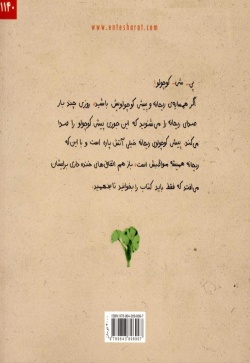 ۱۱۴۰
www.entesharat.com
پی... متی... کوچولو!
اگر همسایه‌ی ریحانه و پیش کوچولومتی باشید، روزی چند بار
صدای ریحانه را می‌شنوید که این جوری پیش کوچولو را صدا
می‌کند. پیش کوچولوی ریحانه خیلی آتش پاره است و با این‌که
ریحانه همیشه مواظبش است، باز هم اتفاق‌های خنده داری برایشان
می‌افتد که فقط باید کتاب را بخوانید تا بفهمید.